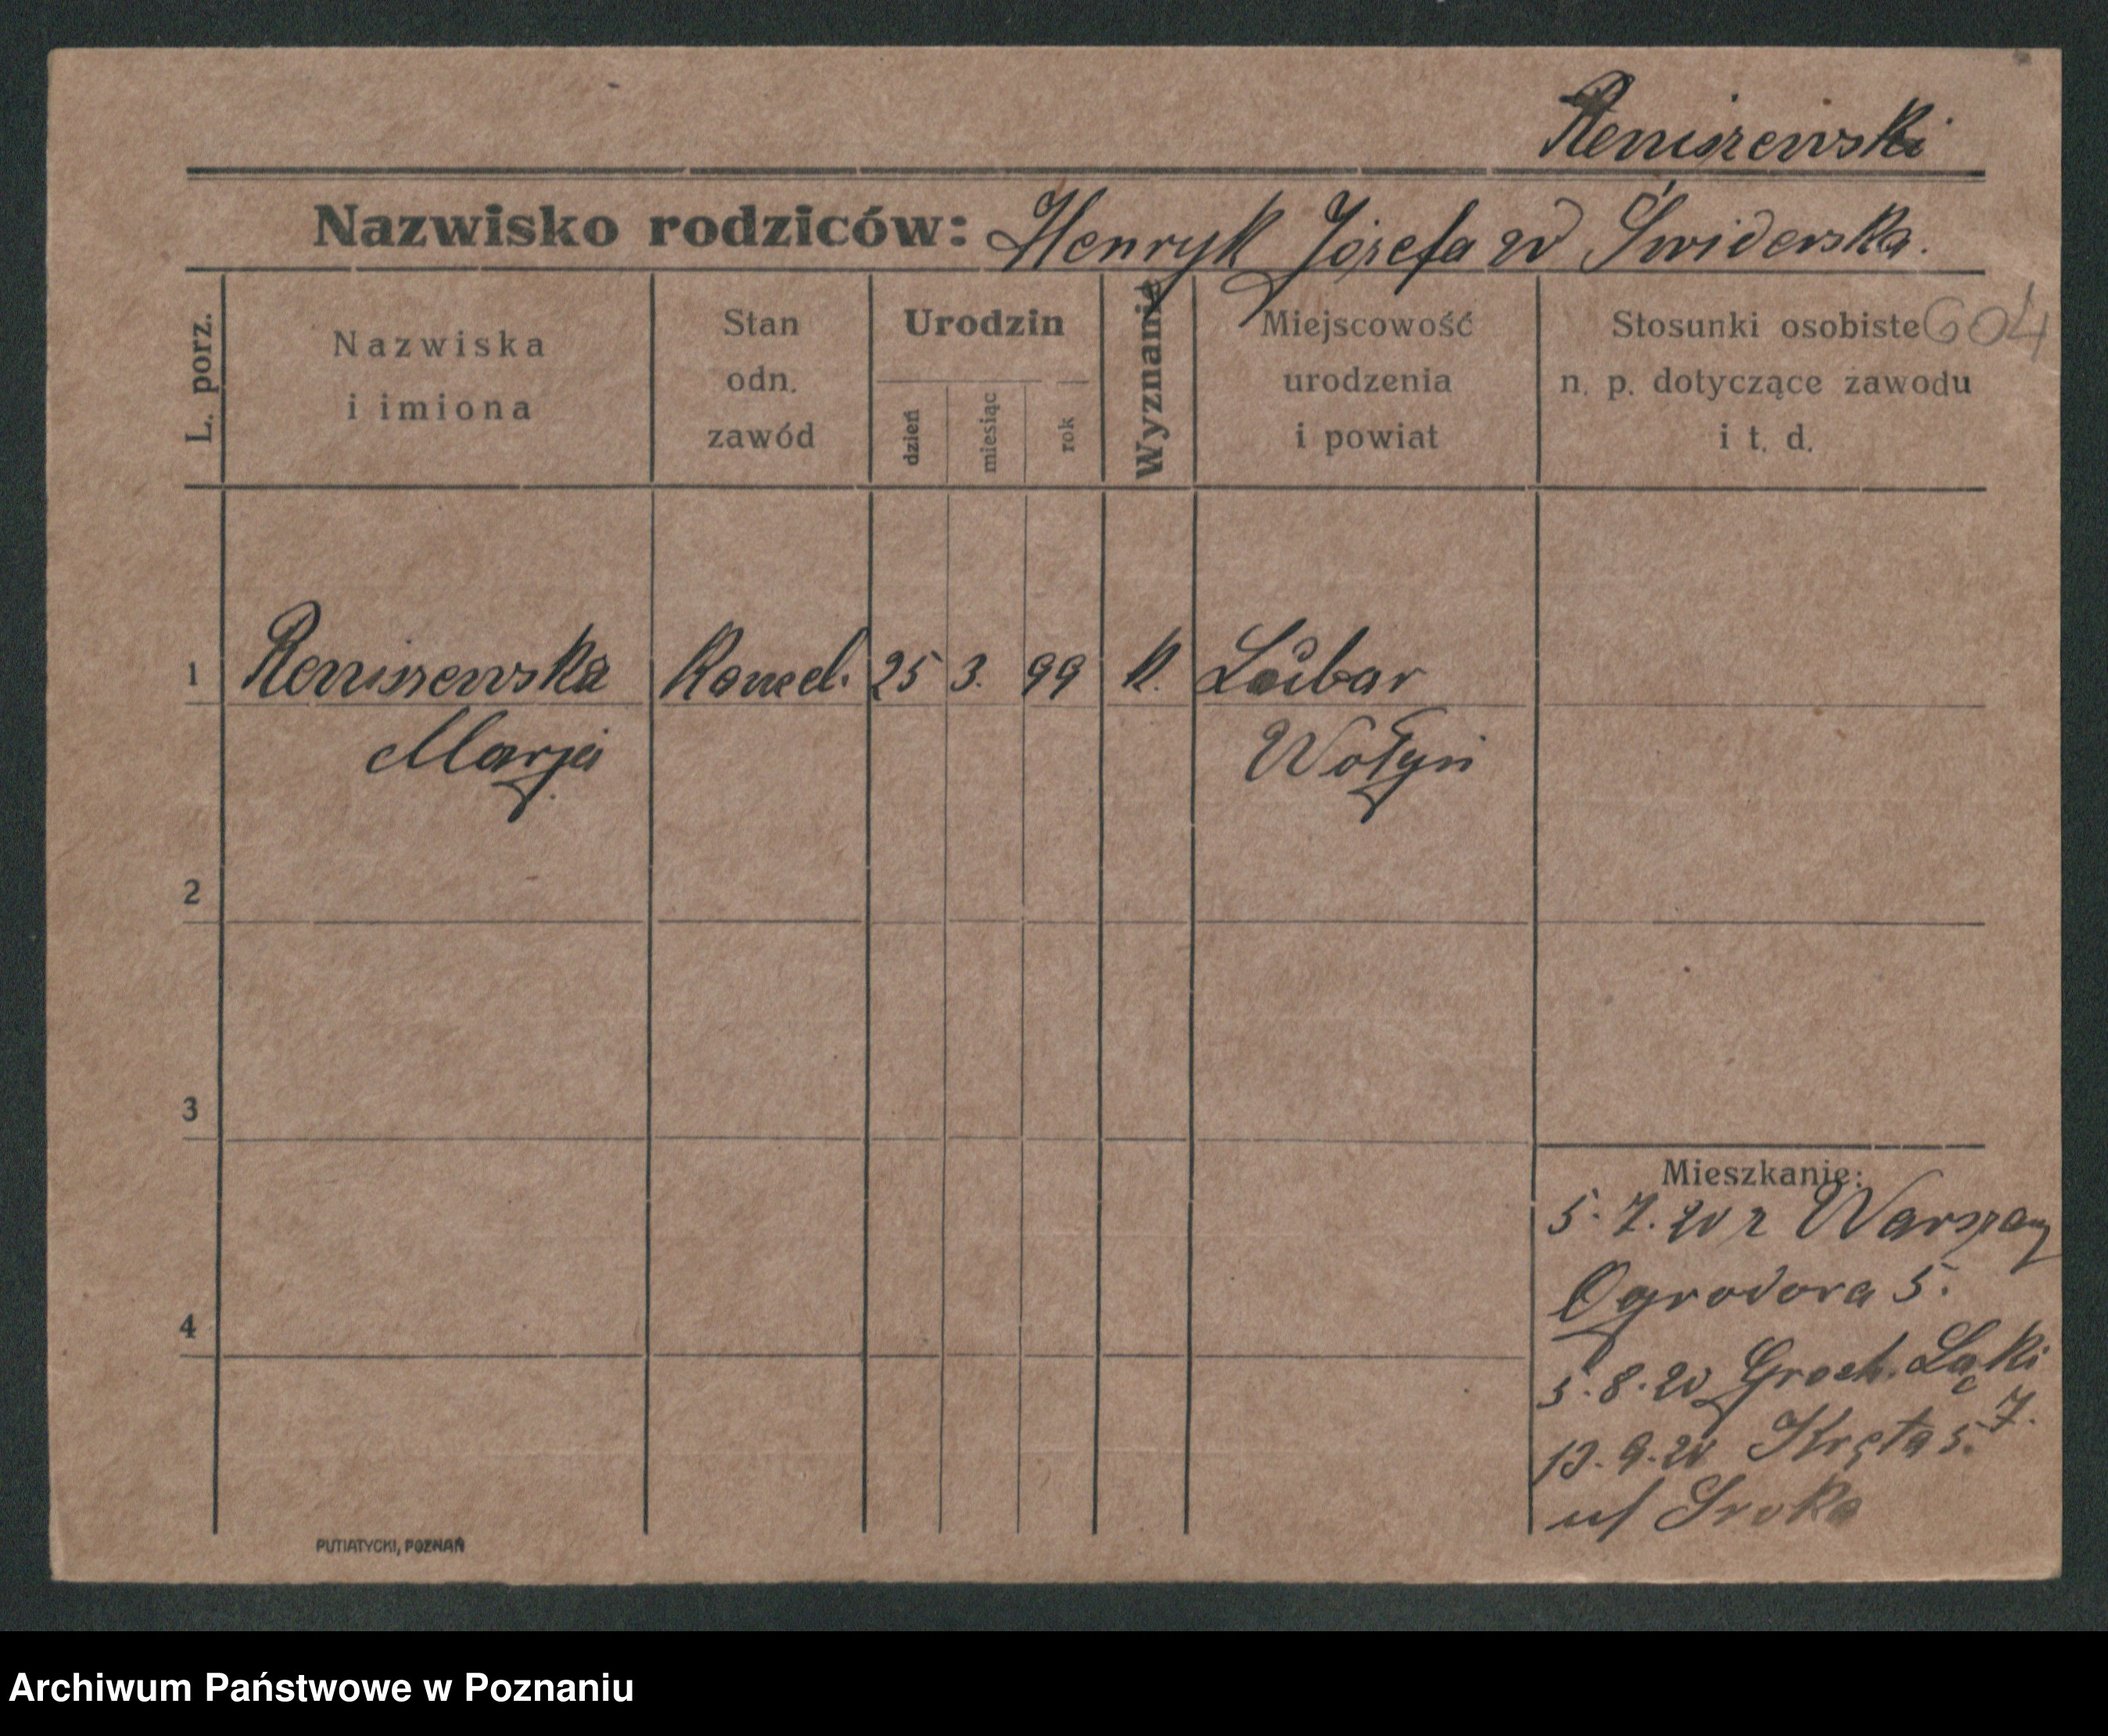 Reniszewski
Nazwisko rodziców: Henryk Józefa zd Świderska.
604
L. porz.
Nazwiska
i imiona
Stan
odn.
zawód
Urodzin
dzień
miesiąc
rok
Wyznanie
Miejscowość
urodzenia
i powiat
Stosunki osobiste
n. p. dotyczące zawodu
i t. d.
1 Reniszewska 25 3. 99 k. Lubar
Marja Wołyń
2
3
4
Mieszkanie:
5.7.20 z Warszawy
Ogrodowa 5.
5.8.20 Groch. Łąki
7.
13.9.20 Kręta 5.
u/ Sroka
PUTIATYCKI, POZNAŃ
Archiwum Państwowe w Poznaniu